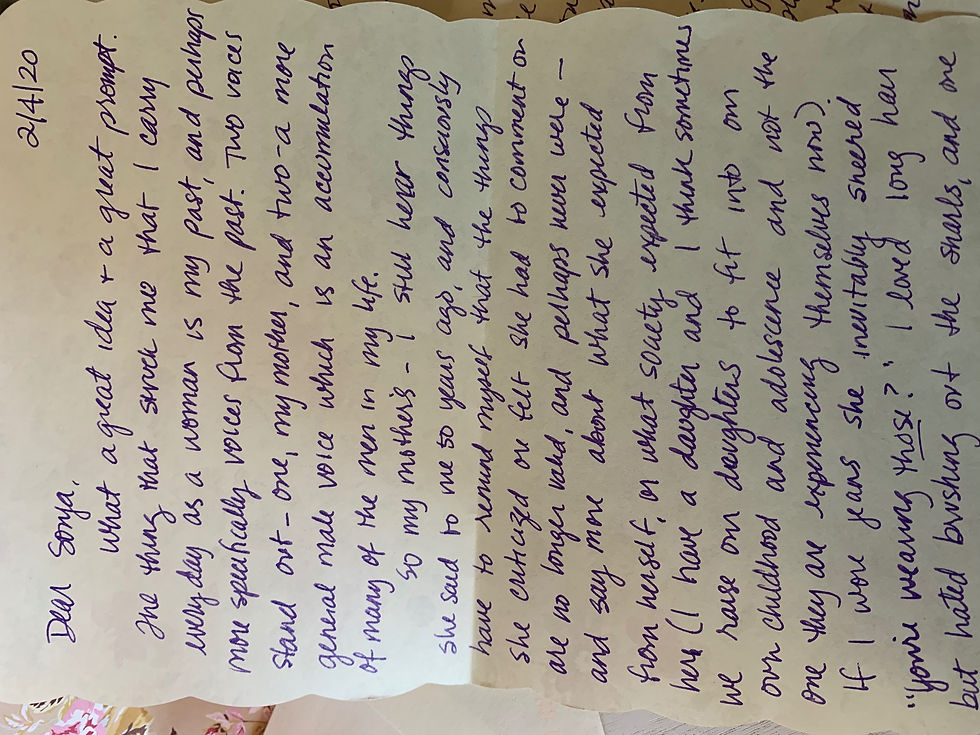 2/4/20
Dear Sonya,
What a great idea + a great prompt.
The thing that struck me that I carry
every day as a woman is my past, and perhaps
more specifically voices from the past. Two voices
stand out - one, my mother, and two - a more
general male voice which is an accumulation
of many of the men in my life.
So my mother's - I still hear things
she said to me 50 years ago, and consciously
have to remind myself that the things
she criticized or felt she had to comment on
are no longer valid, and perhaps never were -
and say more about what she expected
from herself, or what society expected from
her (I have a daughter and I think sometimes
we raise our daughters to fit into our
own childhood and adolescence and not the
one they are experiencing themselves now).
If I wore jeans she inevitably sneered
"you're wearing those?" I loved long hair
but hated brushing out the snarls, and one